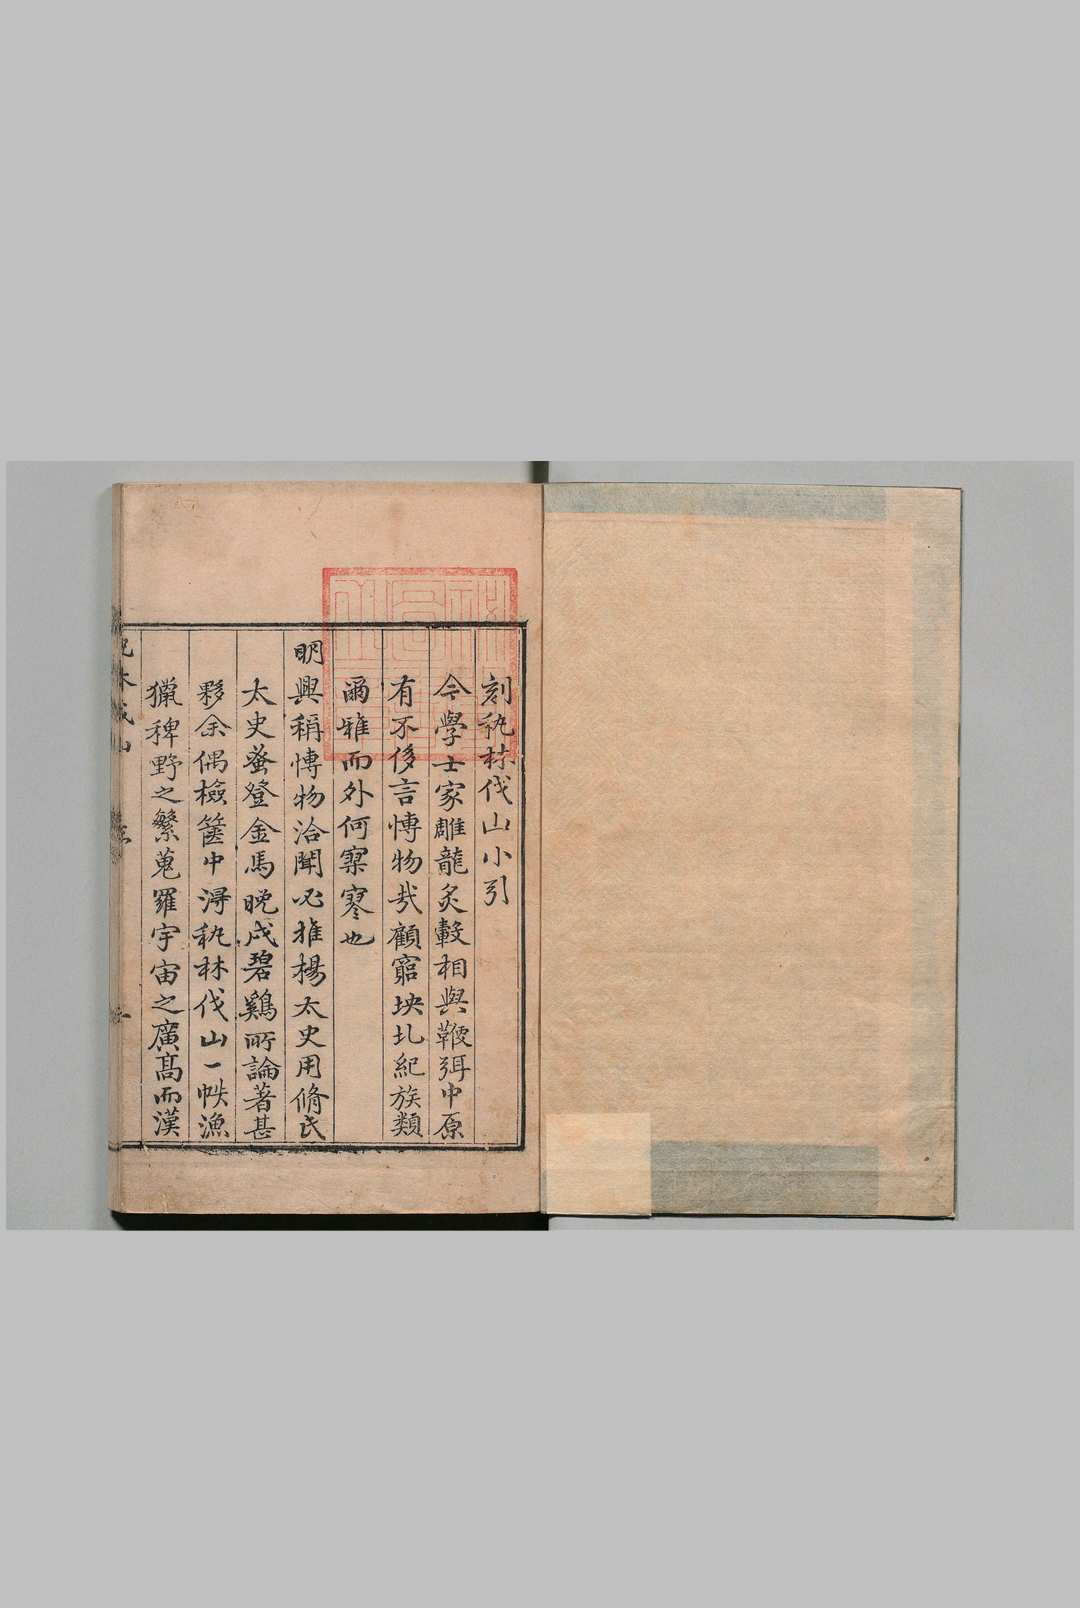 刻秇林伐山小引
今學士家雕龍炙轂相與鞭弭中原
有不侈言博物㢤顧窮坱圠紀族類
爾雅而外何寥寥也
明興稱博物洽聞必推楊太史用脩氏
太史蚤登金馬晚戍碧雞所論著甚
夥余偶檢篋中得秇林伐山一帙漁
獵稗野之繁蒐羅宇宙之廣髙而漢